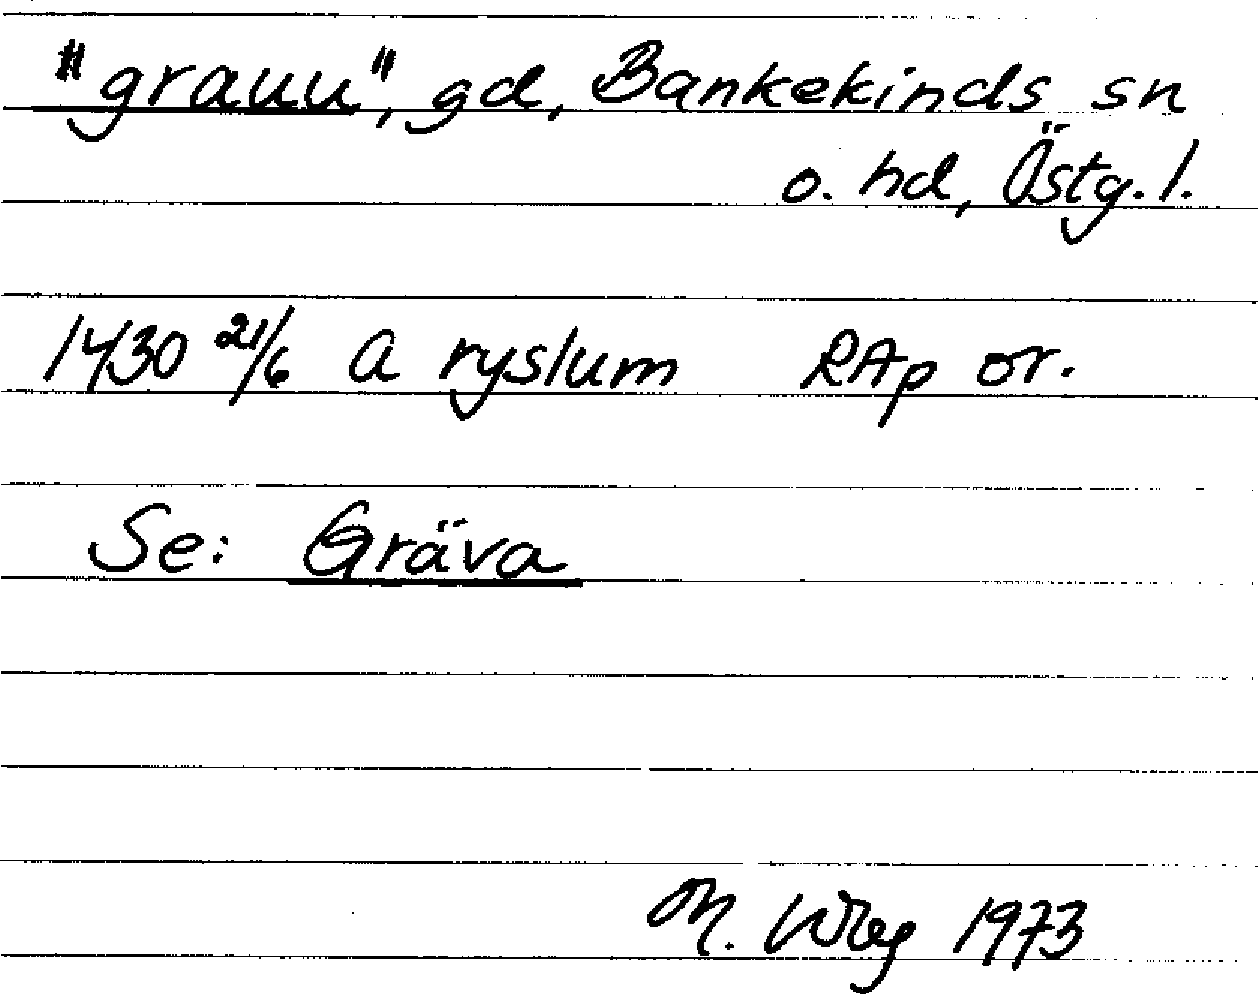 "grauu", gd, Bankekinds sn
o. hd, Östg. l.
1430 21/6 a ryslum RAp or.
Se: Gräva
M. Wreg 1973